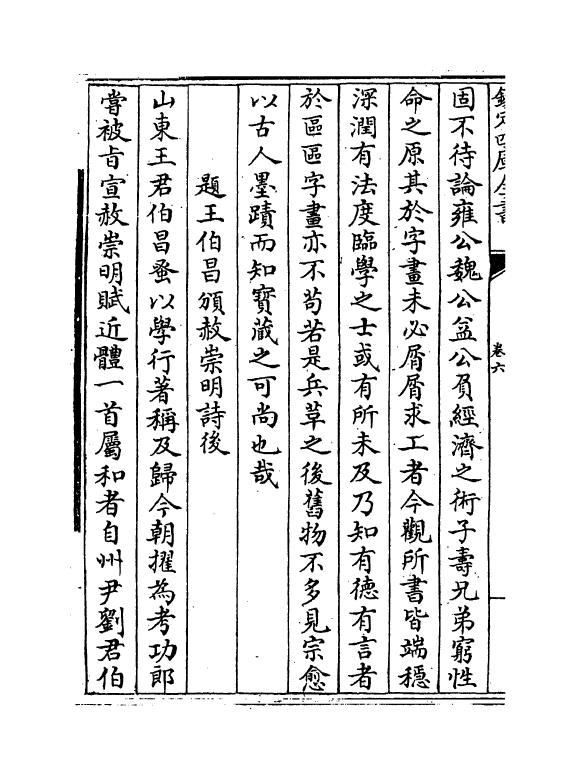 欽定四庫全書
卷六
固不待論雍公魏公益公負經濟之術子壽兄弟窮性
命之原其於字畫未必屑屑求工者今觀所書皆端穩
深潤有法度臨學之士或有所未及乃知有德有言者
於區區字畫亦不苟若是兵草之後舊物不多見宗愈
以古人墨蹟而知寶藏之可尚也哉
題王伯昌頒赦崇明詩後
山東王君伯昌蚤以學行著稱及歸今朝擢為考功郎
嘗被㫖宣赦崇明賦近體一首屬和者自州尹劉君伯